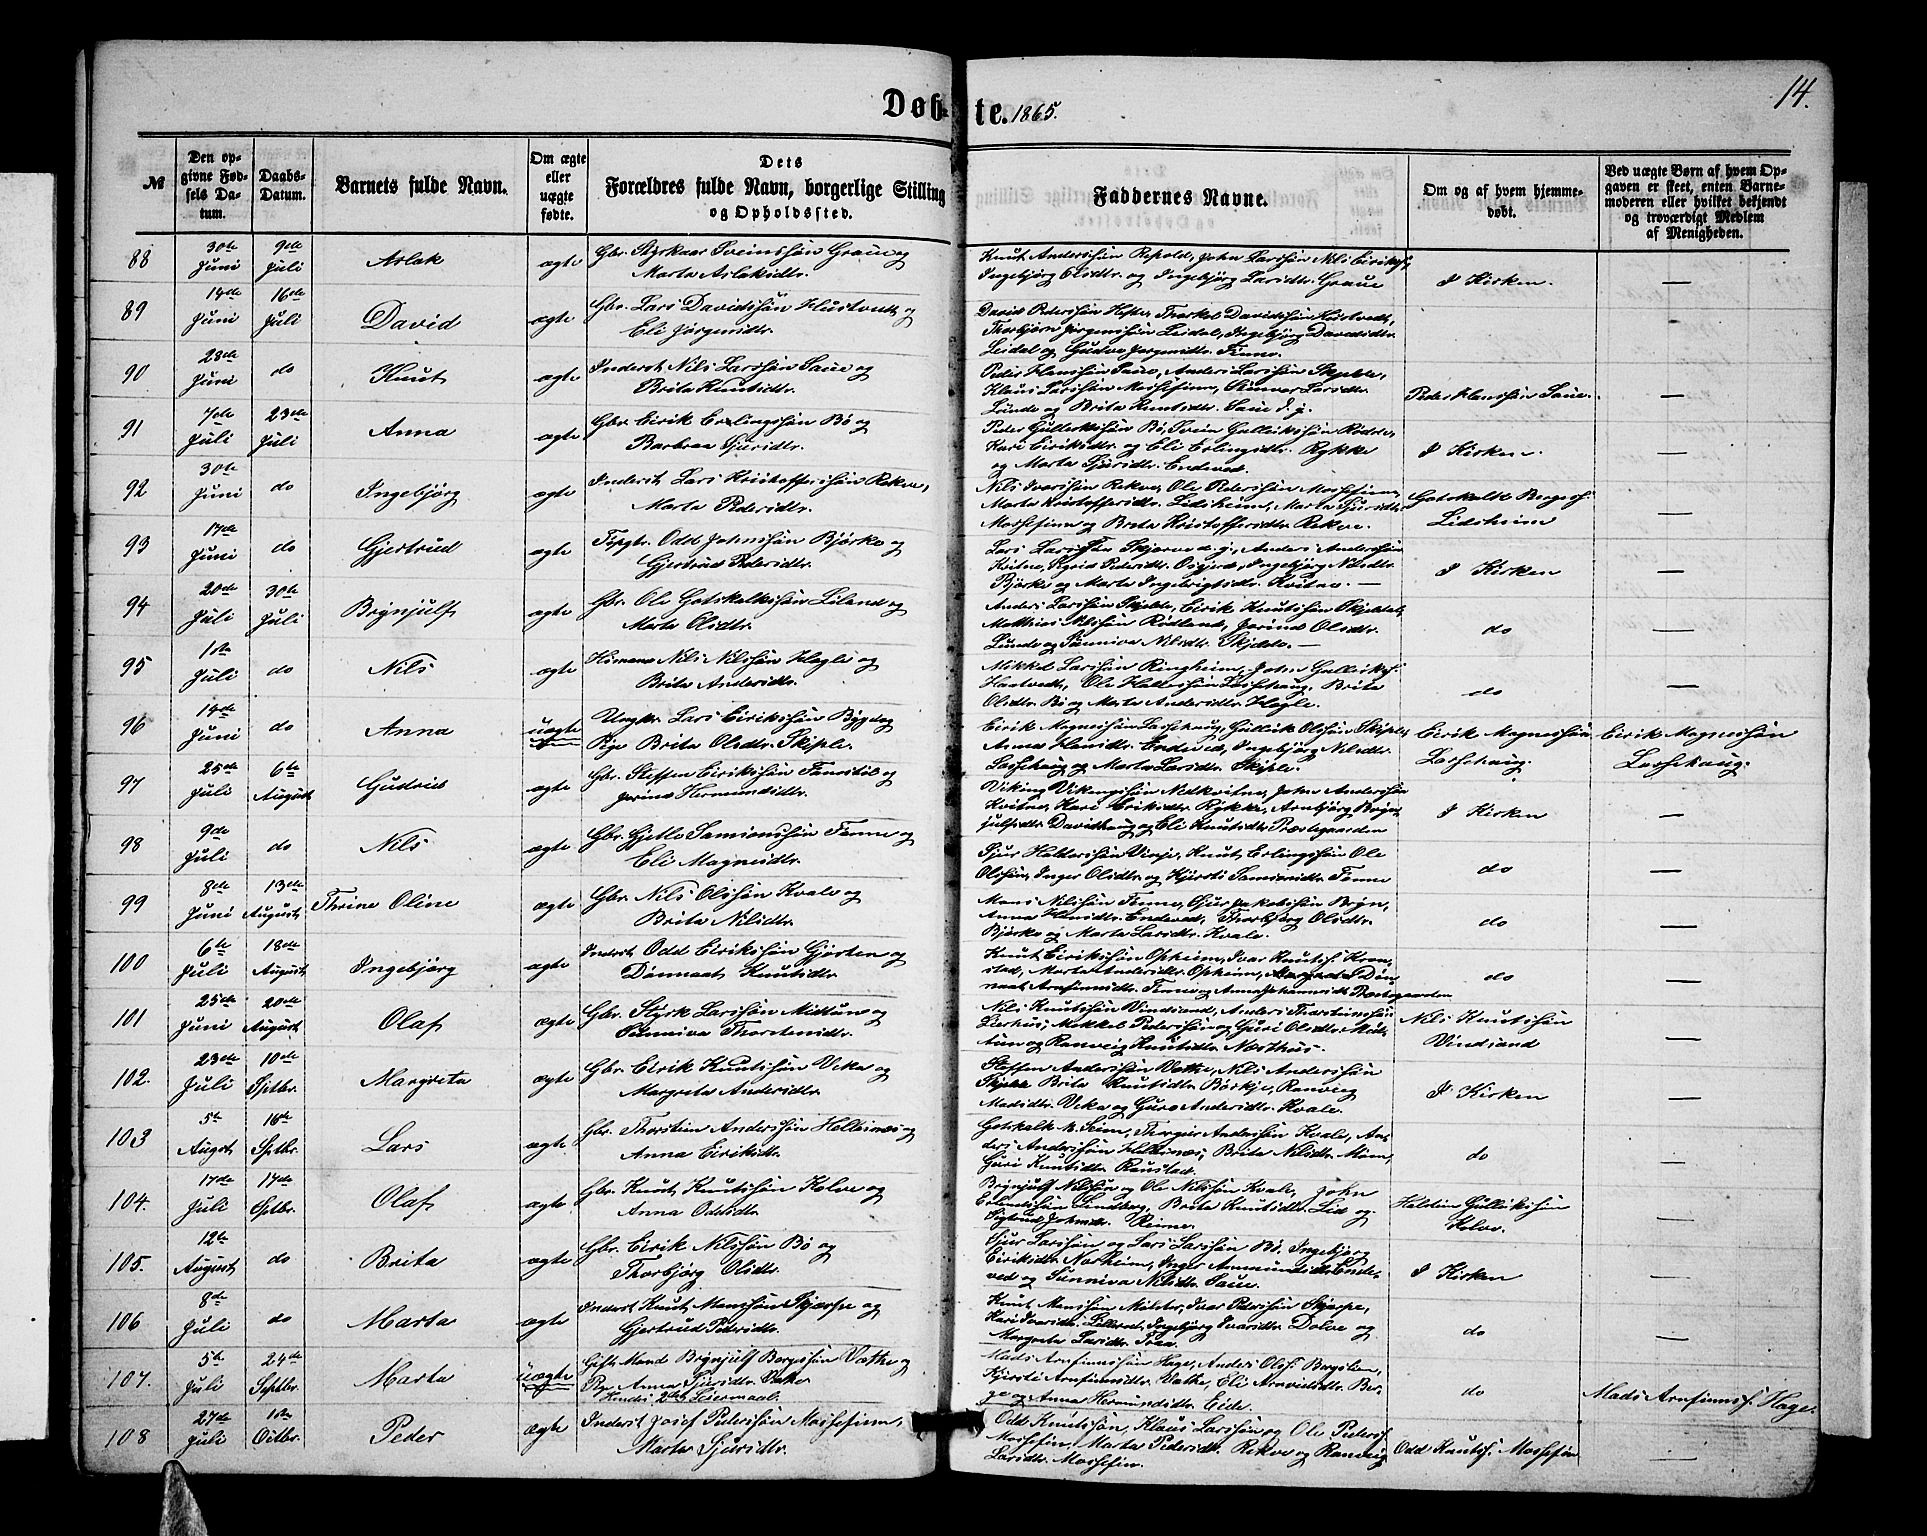 Døb-te. 1865.
14.
№
Den opgivne Fødsels Datum.
Daabs-Datum.
Barnets fulde Navn.
Om ægte eller uægte fødte.
Dets Forældres fulde Navn, borgerlige Stilling og Opholdssted.
Faddernes Navne.
Om og af hvem hjemmedøbt.
Ved uægte Børn af hvem Opgaven er skeet, enten Barnemoderen eller hvilket bekjendt og troværdigt Medlem af Menigheden.
88 30te Juni 9de Juli Aslak ægte Gbr. Styrkaar Sveinssøn Graue og
Marta Aslaksdtr.
Knut Anderssøn Repdal, John Larssøn Nils Eirikss.,
Ingebjørg Elsdtr. og Ingebjørg Larsdtr. Graue
I Kirken. —
89 14de Juni 16de Juli David ægte Gbr. Lars Davidssøn Hustvedt og
Eli Jørgensdtr.
David Pederssøn Hefte, Thorkel Davidssøn Hustvedt,
Thorbjørn Jørgenssøn Leidal, Ingebjørg Davidsdtr.
Leidal og Gudve Jørgensdtr. Finne.
90 28de Juni do Knut ægte Inderst Nils Larssøn Saue og
Brita Knutsdtr.
Peder Hanssøn Saue, Anders Larssøn Skjelde,
Klaus Larssøn Mossefinn, Gunvor Larsdtr.
Lunde og Brita Knutsdtr. Saue d. y.
Peder Hanssøn Saue. —
91 7de Juli 23de Juli Anna ægte Gbr. Eirik Erlingssøn Bø og
Barbraa Sjursdtr.
Peder Gullekssøn Bø, Svein Gullikssøn Rødne,
Kari Eiriksdtr. og Eli Erlingsdtr. Rykke
og Marta Sjursdtr. Endeved.
I Kirken. —
92 30te Juni do Ingebjørg ægte Inderst Lars Kristofferssøn Rekve,
Marta Pedersdtr.
Nils Ivarssøn Rekve, Ole Pederssøn Mossefinn,
Marta Kristoffersdtr. Lidsheim, Marta Sjursdtr.
Mossefinn og Brita Kristoffersdtr. Rekve.
Gotskalk Børges.
Lidsheim —
93 17de Juni do Gjertrud ægte Fpgtr. Odd Johnssøn Bjørke og
Gjertrud Pedersdtr.
Lars Larssøn Skjerve d. y., Anders Anderssøn
Kvitne, Sigrid Pedersdtr. Osgjerd, Ingebjørg Nilsdtr.
Bjørke og Marta Ingebrigtsdtr. Kvitne. —
I Kirken —
94 20de Juli 30te Juli Brynjulf ægte Gbr. Ole Gotskalkssøn Liland og
Marta Olsdtr.
Anders Larssøn Skjelde, Eirik Knutssøn Skjeldal,
Matthias Nilssøn Rødland, Jorind Olsdtr.
Lunde og Sunniva Nilsdtr. Skjelde. —
do —
95 1ste Juli do Nils ægte Husmand Nils Nilssøn Hægle og
Brita Andersdtr.
Mikkel Larssøn Ringheim, John Gullikss.
Haatvedt, Ole Halderssøn Lassehaug, Brita
Olsdtr. Bø og Marta Andersdtr. Hægle.
do —
96 14de Juni do Anna uægte Ungkr. Lars Eirikssøn Bygd og
Pige Brita Olsdtr. Skiple.
Eirik Magnessøn Lassehaug, Gullik Olssøn Skiple,
Anna Hansdtr. Endeved, Ingebjørg Nilsdtr.
Lassehaug og Marta Larsdtr. Skiple.
Eirik Magnessøn
Lassehaug.
Eirik Magnessøn
Lassehaug.
97 25de Juli 6te August Gudrid ægte Gbr. Steffen Eirikssøn Fanestil og
Jorind Hermundsdtr.
Viking Vikingssøn Nedkvitne, John Anderssøn
Kvitne, Kari Eiriksdtr. Rykke, Arnbjørg Brynjulfsdtr. Davidhaug og Eli Knutsdtr. Præstegaarden
I Kirken —
98 9de Juli do Nils ægte Gbr. Gjetle Samsonssøn Finne og
Eli Magnesdtr.
Sjur Halderssøn Vinje, Knut Erlingssøn Ole
Olssøn, Inger Olsdtr. og Kjersti Samsonsdtr. Finne
do —
99 8de Juni 13de August Thrine Oline ægte Gbr. Nils Olssøn Kvale og
Brita Nilsdtr.
Mons Nilssøn Finne, Sjur Jakobssøn Bryn,
Anna Hansdtr. Endeved, Thorbjørg Olsdtr.
Bjørke og Marta Larsdtr. Kvale.
do —
100 6te Juli 18de August Ingebjørg ægte Inderst Odd Eirikssøn Gjerten og
Dønnaat Knutsdtr.
Knut Eirikssøn Opheim, Ivar Knuts. Kronstad, Marta Andersdtr. Opheim, Dønnaat Arnfinnsdtr. Finne og Anna Johannesdtr. Præstegaarden
do —
101 25de Juni 20de August Olaf ægte Gbr. Styrk Larssøn Mittun og
Sunniva Thorstensdtr.
Nils Knutssøn Vindsand, Anders Thorstenssøn
Lirhus, Mikkel Pederssøn og Guri Olsdtr. Mittun og Ranveig Knutsdtr. Næsthus.
Nils Knutssøn
Vindsand —
102. 23de Juli 10de Sptbr. Margreta ægte Gbr. Eirik Knutssøn Veka og
Margreta Andersdtr.
Steffen Anderssøn Vatle, Nils Anderssøn
Skiple Brita Knutsdtr. Børkje, Ranveig
Madsdtr. Veka og Guro Andersdtr. Kvale.
I Kirken —
103 5te August 16de Sptbr. Lars ægte Gbr. Thorstein Anderssøn Hellesnes og
Anna Eiriksdtr.
Gotskalk M. Seim, Thorgier Anderssøn Kvale, Anders Anderssøn Hellesnes, Brita Nilsdtr. Møen,
Guri Knutsdtr. Raustad.
do —
104. 17de Juli 17de Sptbr. Olaf ægte Gbr. Knut Knutssøn Kolve og
Anna Oddsdtr.
Brynjulf Nilssøn og Ole Nilssøn Kvale, John
Erlandssøn Lundberg, Brita Knutsdtr. Lid og
Sigtrud Johnsdr. Reime.
Haldin Gullikssøn
Kolve. —
105. 12te August do Brita ægte Gbr. Eirik Nilssøn Bø og
Thorbjørg Olsdtr.
Sjur Larssøn og Lars Larssøn Bø, Ingebjørg
Eiriksdtr. Norheim, Inger Aamundsdtr. Endeved og Sunniva Nilsdtr. Saue.
I Kirken —
106 8de Juli do Marta ægte Inderst Knut Monssøn Skjerpe og
Gjertrud Pedersdtr.
Knut Monssøn Mølster, Ivar Pederssøn Skjerpe,
Kari Ivarsdtr. Lillered, Ingebjørg Ivarsdtr. Dolve og
Margreta Larsdtr. Traa.
do —
107. 5te Juli 24de Septbr. Marta uægte Gift Mand Brynjulf Børgessøn Vatle og
Pige Anna Sjursdtr. Vatle
Hendes 2det Leiermaal
Mads Arnfinnssøn Hage, Anders Olss. Bergslien,
Kjersti Arnfinnsdtr. Vatle, Eli Arnvidsdtr. Berge og Anna Hermundsdtr. Eide.
do
Mads Arnfinnss. Hage.
108 27de Juli 1ste Octbr. Peder ægte Inderst Josef Pederssøn Mossefinn,
Marta Sjursdtr.
Odd Knutssøn, Klaus Larssøn og Ole Peders.
Mossefinn, Marta Pedersdtr. Rekve og Ranveig
Larsdtr. Mossefinn.
Odd Knuts. Mossefinn —